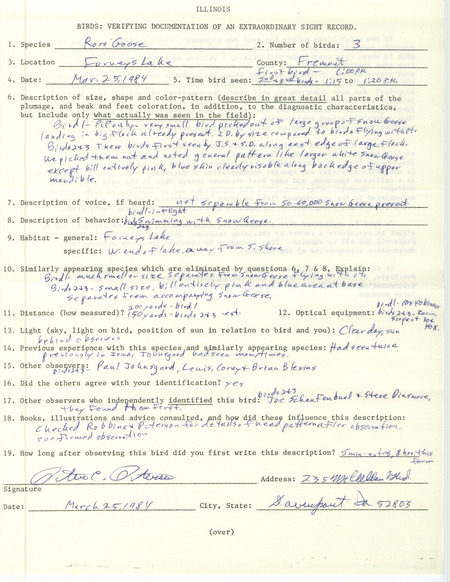 ILLINOIS
BIRDS: VERIFYING DOCUMENTATION OF AN EXTRAORDINARY SIGHT RECORD.
1. Species Ross Goose 2. Number of birds: 3
3. Location Forneys Lake County: Fremont
4. Date: Mar. 25, 1984 5. Time bird seen: First bird - 1:00 P.M. 2nd & 3rd birds - 1:15 to 1:20 P.M.
6. Description of size, shape and color-pattern (describe in great detail all parts of the
plumage, and beak and feet coloration, in addition, to the diagnostic characteristics,
but include only what actually was seen in the field):
Bird 1 - P.P. only - very small bird picked out of large group of snow Geese
landing in big flock already present. I.D. by size compared to birds flying with it.
Birds 2&3 These birds first seen by J.S. & S.D. along east edge of large flock.
We picked them out and noted general pattern like larger white Snow Geese
except bill entirely pink, blue skin clearly visible along back edge of upper
mandible.
7. Description of voice, if heard: not separable from 50-60,000 snow Geese present
8. Description of behavior: bird 1 - in flight birds 2&3 swimming with snow Geese
9. Habitat - general: Forneys Lake
specific: W. end of lake, away from S. shore
10. Similarly appearing species which are eliminated by questions 6, 7 & 8. Explain:
Bird 1 - much smaller size separates from Snow Geese flying with it.
Birds 2&3 - small size, bill entirely pink and blue area at base
separates from accompanying snow Geese.
11. Distance (how measured)? 200 yards - bird 1 150 yards - birds 2&3 - est. 12. Optical equipment: bird 1 - 10x40 binocs birds 2&3 - zoom scope at 30x 40x.
13. Light (sky, light on bird, position of sun in relation to bird and you): Clear day, sun
behind observers
14. Previous experience with this species and similarly appearing species: Had seen twice
previously in Iowa, Johnsgard had seen many times.
15. Other observers: birds 2&3 - Paul Johnsgard, Lewis, Corey & Brian Blevins
16. Did the others agree with your identification? yes
17. Other observers who independently identified this bird: birds 2&3 Joe Schaufenbuel & Steve Dinsmore,
they found them first.
18. Books, illustrations and advice consulted, and how did these influence this description:
Checked Robbins & Peterson for details of head pattern after observation.
confirmed observation
19. How long after observing this bird did you first write this description? 5 min - notes, 8 hrs. this
form
Signature Address: 235 McClellan Blvd
Date: March 25, 1984 City, State: Davenport Ia 52803
(over)